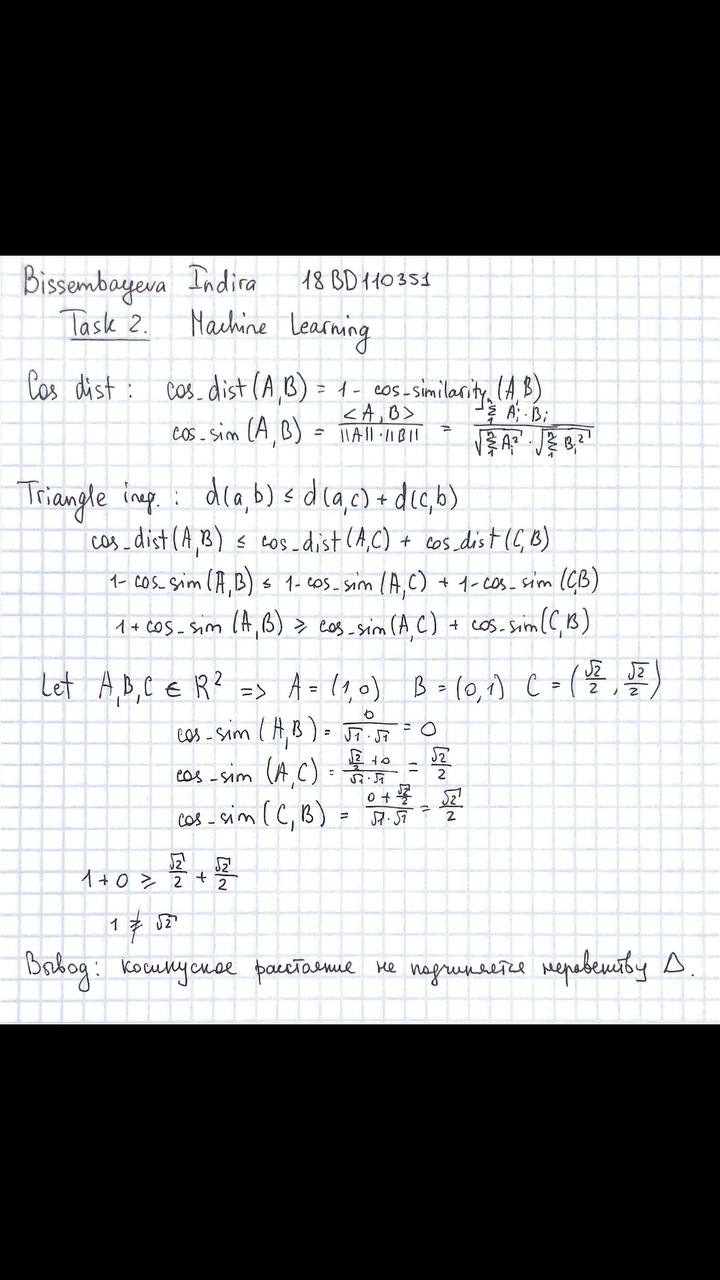 Bissembayeva Indira 18BD110351
Task 2. Machine Learning
Cos dist : cos_dist(A,B) = 1 - cos_similarity(A,B)
cos_sim(A,B) = <A,B> / (||A||·||B||) = Σ₁ⁿ Aᵢ·Bᵢ / (√(Σ₁ⁿ Aᵢ²) · √(Σ₁ⁿ Bᵢ²))
Triangle ineq. : d(a,b) ≤ d(a,c) + d(c,b)
cos_dist(A,B) ≤ cos_dist(A,C) + cos_dist(C,B)
1-cos_sim(A,B) ≤ 1-cos_sim(A,C) + 1-cos_sim(C,B)
1+cos_sim(A,B) ≥ cos_sim(A,C) + cos_sim(C,B)
Let A,B,C ∈ R² => A = (1,0) B = (0,1) C = (√2/2, √2/2)
cos_sim(A,B) = 0/(√1·√1) = 0
cos_sim(A,C) = (√2/2 + 0)/(√1·√1) = √2/2
cos_sim(C,B) = (0 + √2/2)/(√1·√1) = √2/2
1+0 ≥ √2/2 + √2/2
1 ≱ √2
Вывод: косинусное расстояние не подчиняется неравенству Δ.